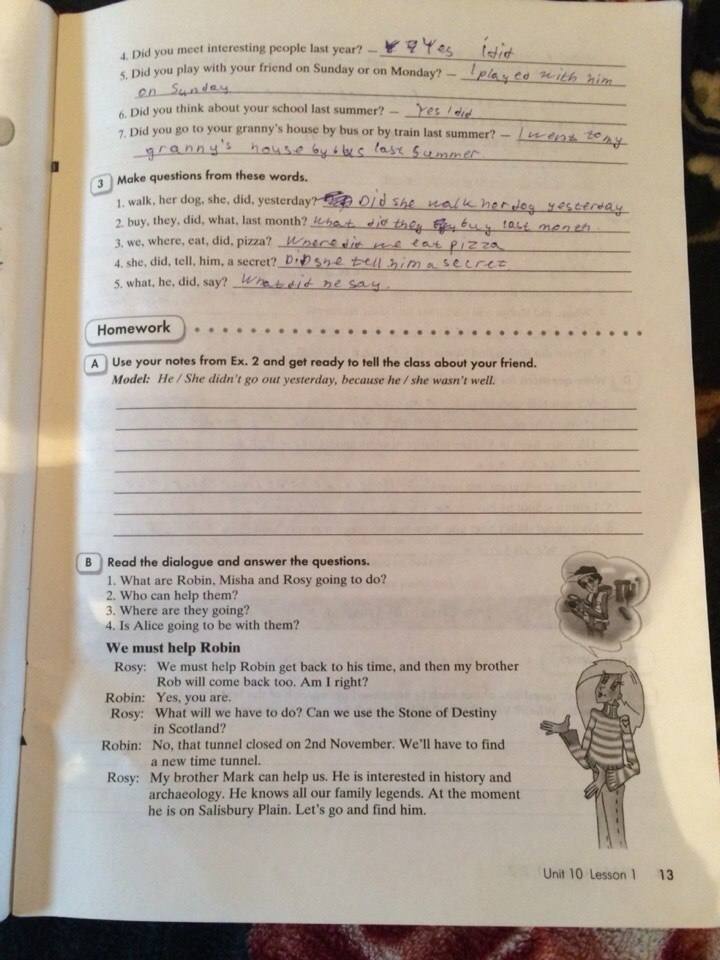 4. Did you meet interesting people last year? – Yes i did
5. Did you play with your friend on Sunday or on Monday? – I played with him
on Sunday
6. Did you think about your school last summer? – Yes I did
7. Did you go to your granny's house by bus or by train last summer? – I went to my
granny's house by bus last summer
3 Make questions from these words.
1. walk, her dog, she, did, yesterday? Did she walk her dog yesterday
2. buy, they, did, what, last month? What did they buy last month.
3. we, where, eat, did, pizza? Where did we eat pizza
4. she, did, tell, him, a secret? Did she tell him a secret
5. what, he, did, say? What did he say.
Homework
A Use your notes from Ex. 2 and get ready to tell the class about your friend.
Model: He / She didn't go out yesterday, because he / she wasn't well.
B Read the dialogue and answer the questions.
1. What are Robin, Misha and Rosy going to do?
2. Who can help them?
3. Where are they going?
4. Is Alice going to be with them?
We must help Robin
Rosy: We must help Robin get back to his time, and then my brother
Rob will come back too. Am I right?
Robin: Yes, you are.
Rosy: What will we have to do? Can we use the Stone of Destiny
in Scotland?
Robin: No, that tunnel closed on 2nd November. We'll have to find
a new time tunnel.
Rosy: My brother Mark can help us. He is interested in history and
archaeology. He knows all our family legends. At the moment
he is on Salisbury Plain. Let's go and find him.
Unit 10 Lesson 1 13